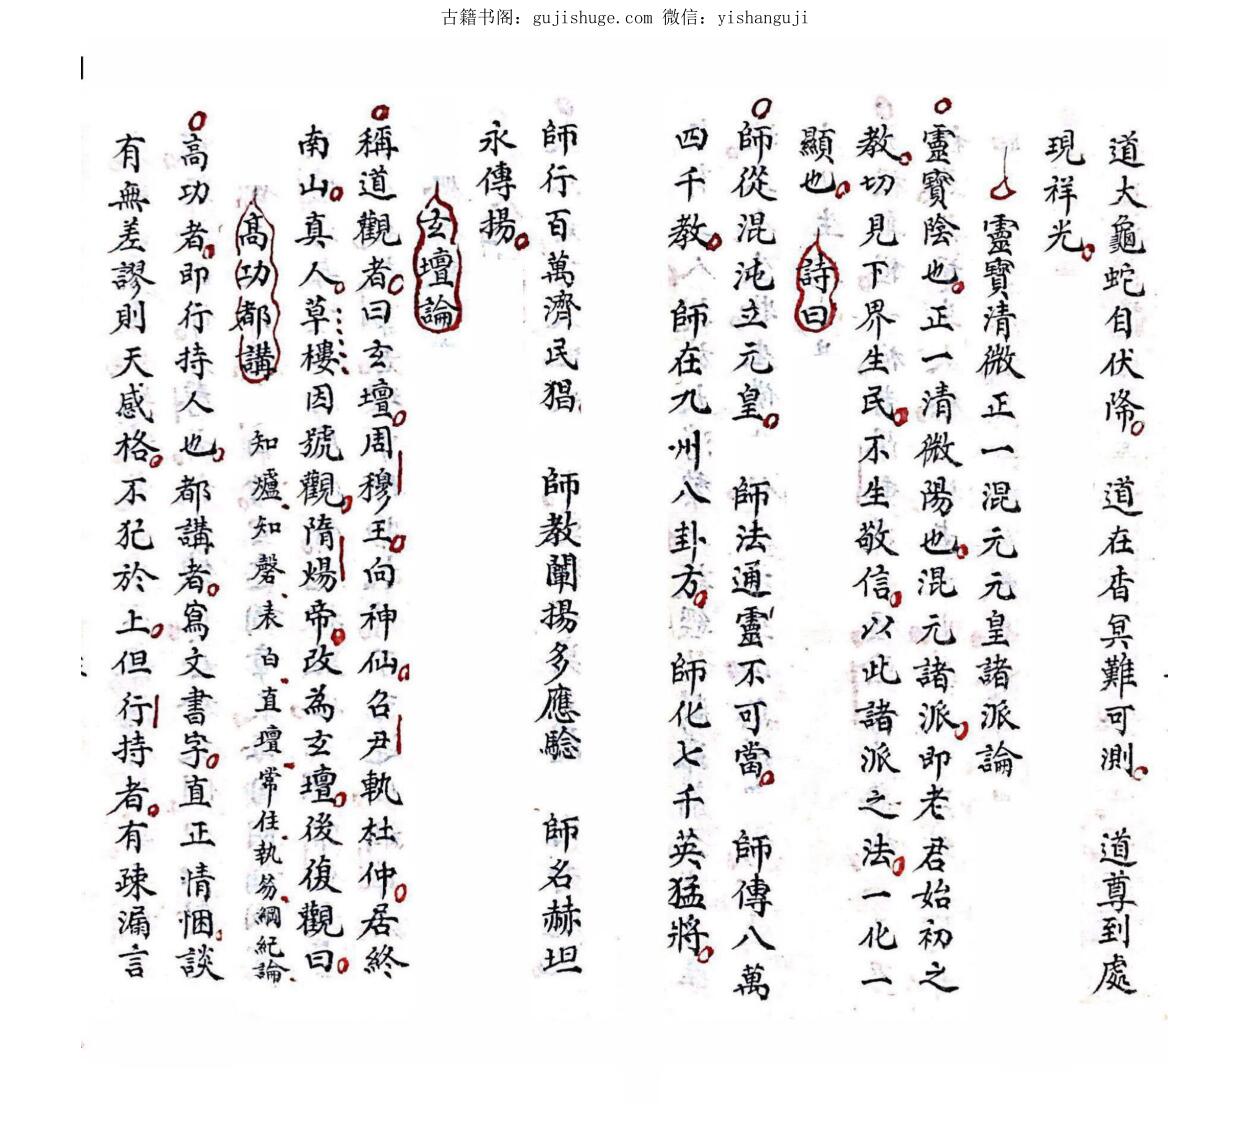 古籍书阁：gujishuge.com 微信：yishanguji
道大龜蛇自伏降 道在杳冥難可測 道尊到處
現祥光
靈寶清微正一混元元皇諸派論
靈寶陰也正一清微陽也混元諸派即老君始初之
教切見下界生民不生敬信以此諸派之法一化一
顯也 詩曰
師從混沌立元皇 師法通靈不可當 師傳八萬
四千教 師在九州八卦方 師化七千英猛將
師行百萬濟民猖 師教闡揚多應驗 師名赫坦
永傳揚
玄壇論
稱道觀者曰玄壇周穆王向神仙召尹軌杜仲居終
南山真人草樓因號觀隋煬帝改為玄壇後復觀曰
高功都講 知爐知磬表白直壇常住執芻綱紀論
高功者即行持人也都講者寫文書字直正情悃談
有無差謬則天感格不犯於上但行持者有疎漏言